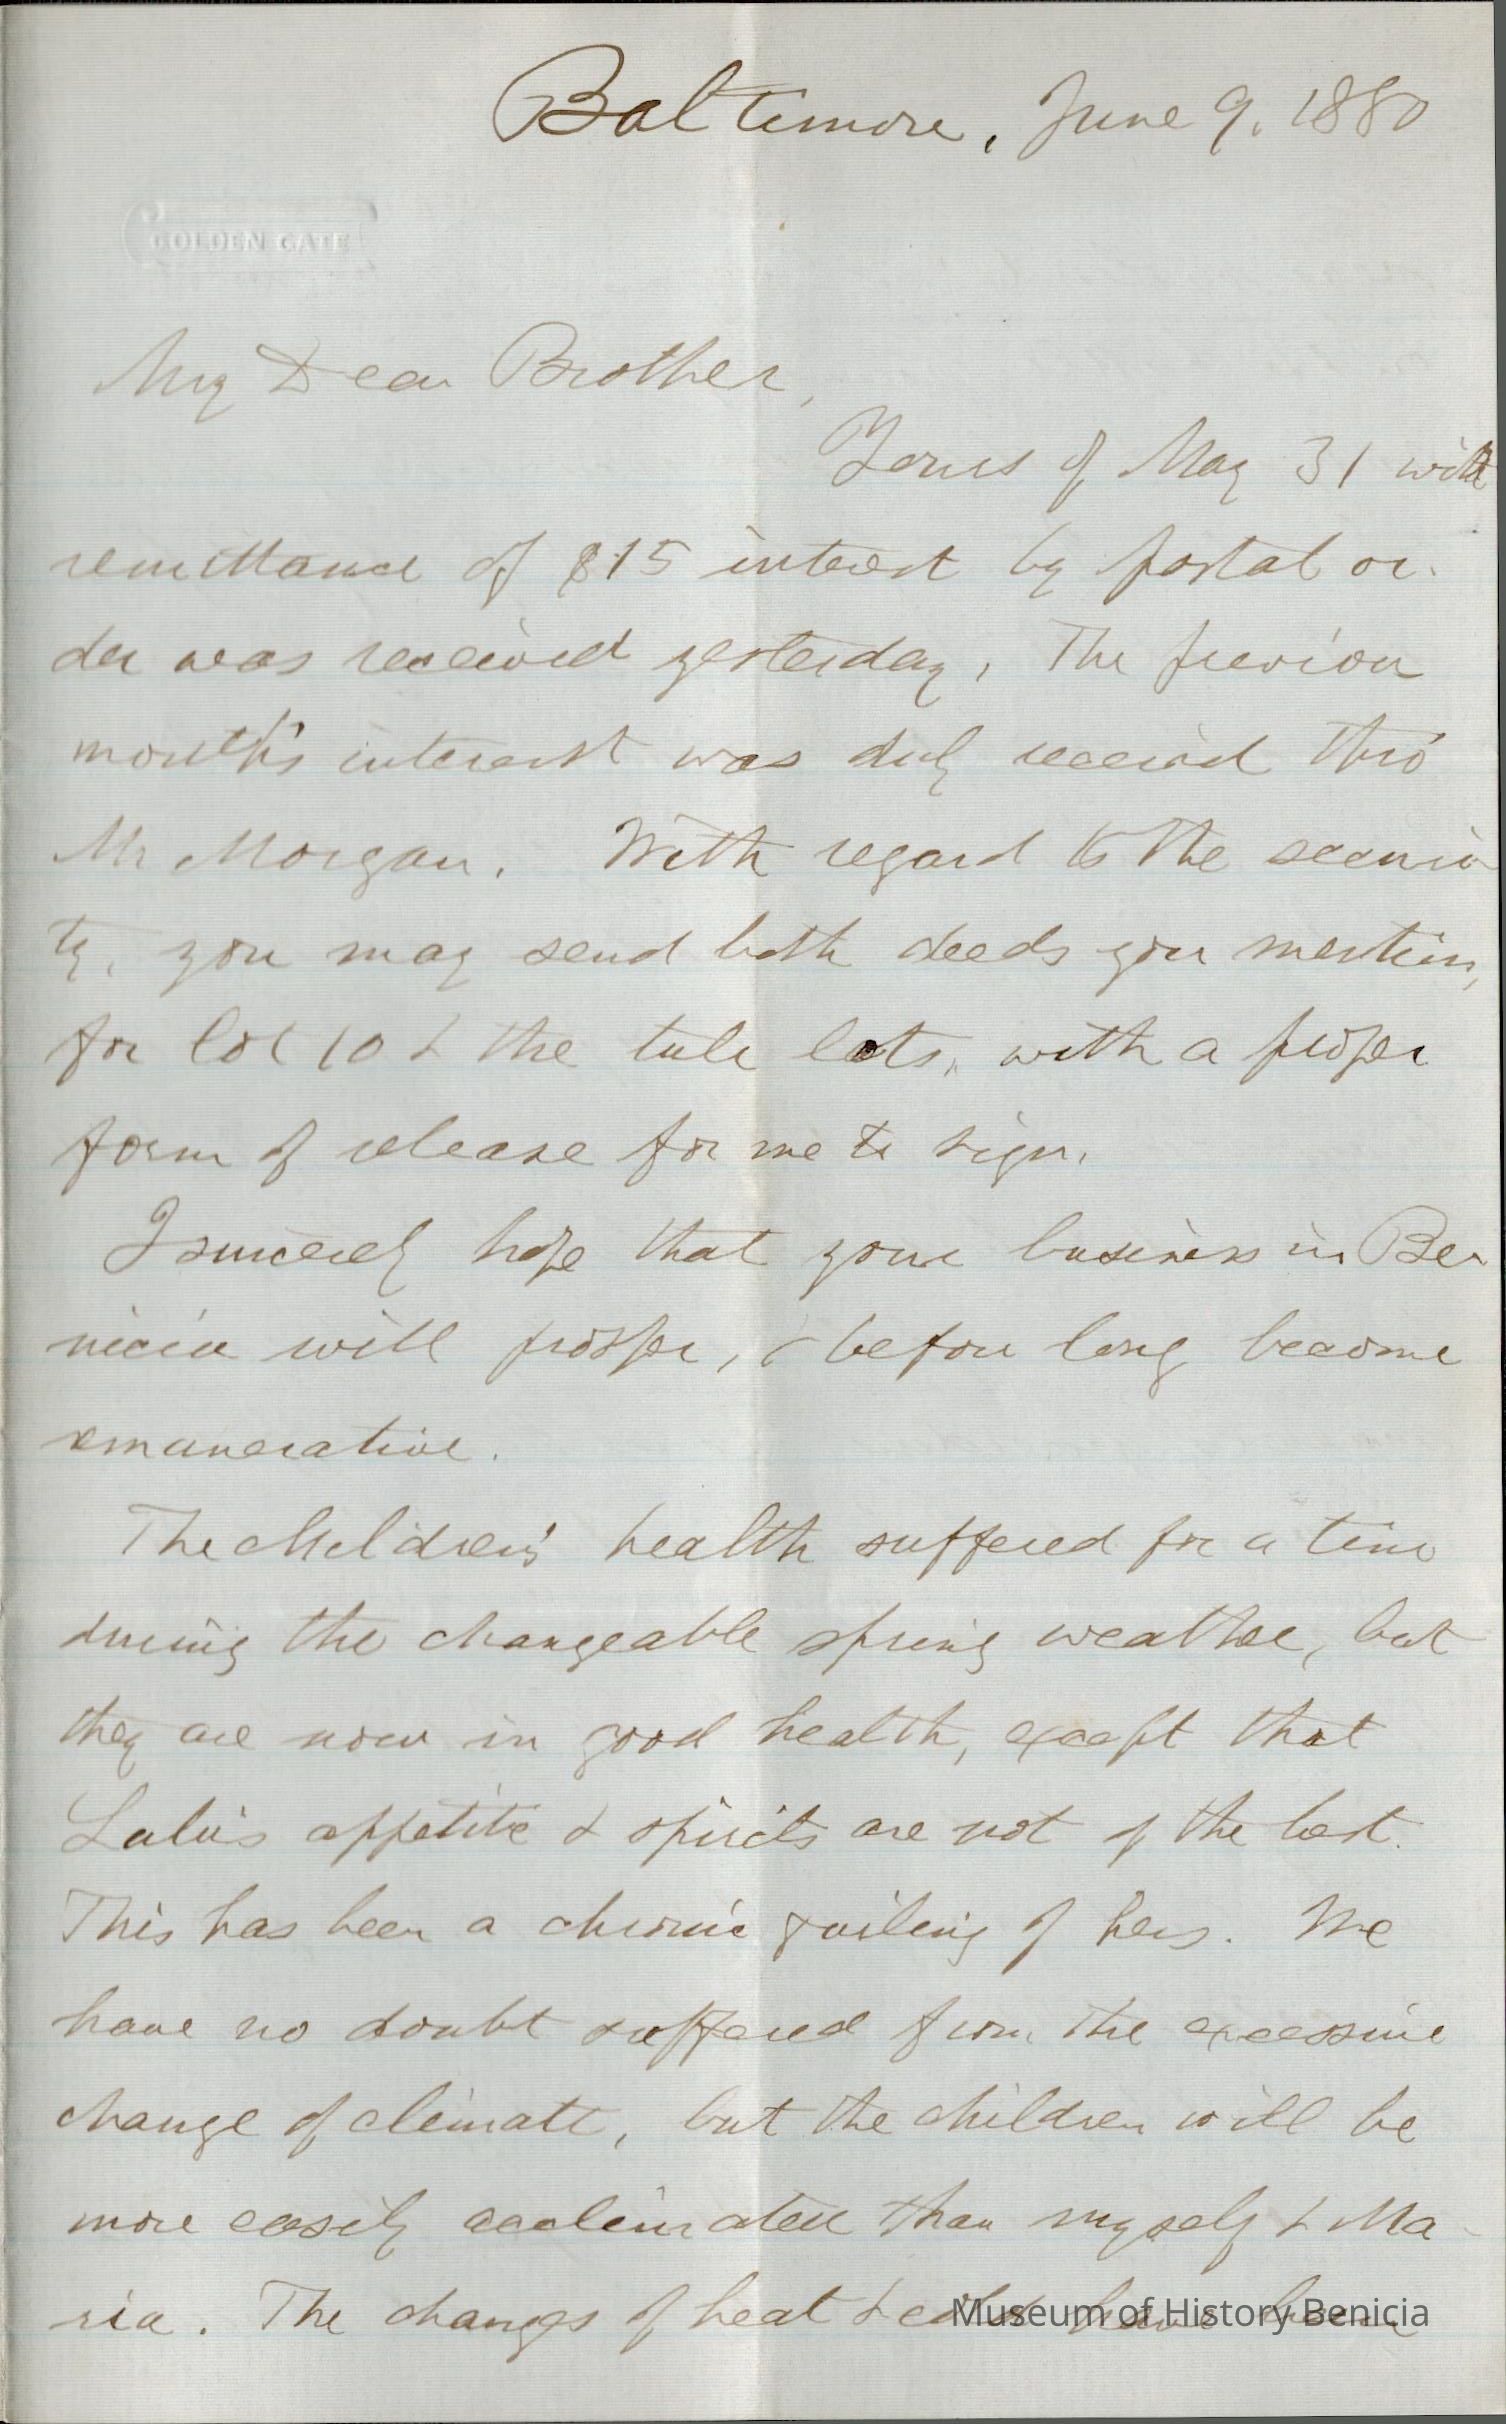 Baltimore, June 9, 1880
GOLDEN GATE
My Dear Brother,
Yours of May 31 with
remittance of $15 interest by postal or-
der was received yesterday. The previous
month's interest was duly received thro'
Mr Morgan. With regard to the securi-
ty, you may send both deeds you mention,
for lot 10 & the tule lots, with a proper
form of release for me to sign.
I sincerely hope that your business in Be-
nicia will prosper, & before long become
remunerative.
The children's health suffered for a time
during the changeable spring weather, but
they are now in good health, except that
Lulu's appetite & spirits are not of the best.
This has been a chronic failing of hers. We
have no doubt suffered from the excessive
change of climate, but the children will be
more easily acclimated than myself & Ma-
ria. The changes of heat & cold have been
Museum of History Benicia